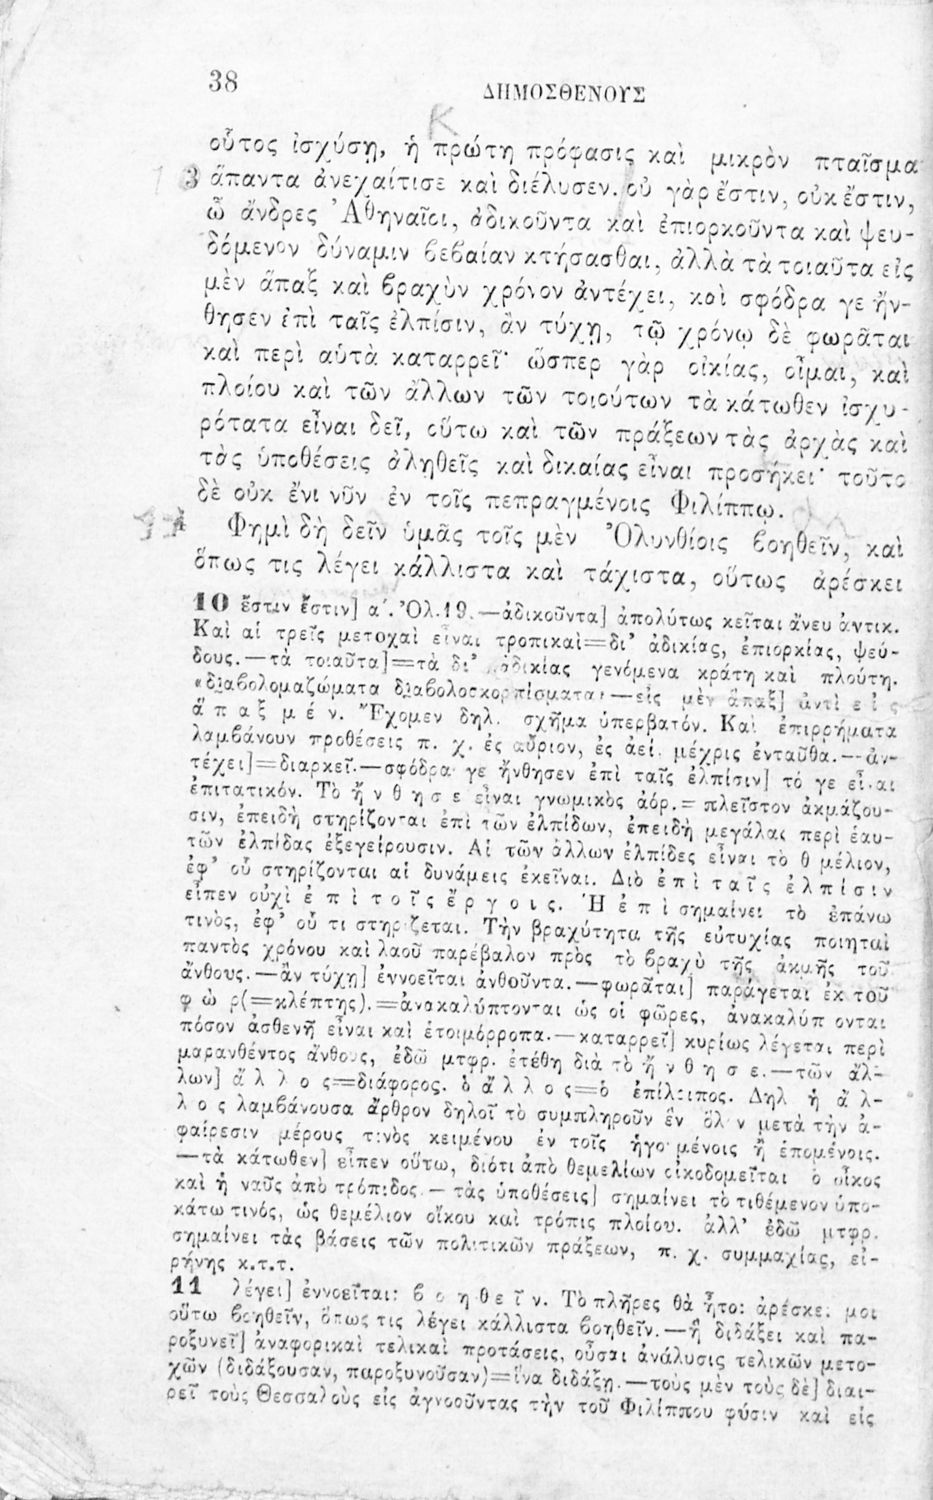 38
ΔΗΜΟΣΘΕΝΟΥΣ
Κ
οὗτος ἰσχύσῃ, ἡ πρώτη πρόφασις καὶ μικρὸν πταῖσμα
3 ἅπαντα ἀνεχαίτισε καὶ διέλυσεν. οὐ γὰρ ἔστιν, οὐκ ἔστιν,
ὦ ἄνδρες Ἀθηναῖοι, ἀδικοῦντα καὶ ἐπιορκοῦντα καὶ ψευ-
δόμενον δύναμιν βεβαίαν κτήσασθαι, ἀλλὰ τὰ τοιαῦτα εἰς
μὲν ἅπαξ καὶ βραχὺν χρόνον ἀντέχει, καὶ σφόδρα γε ἤν-
θησεν ἐπὶ ταῖς ἐλπίσιν, ἂν τύχῃ, τῷ χρόνῳ δὲ φωρᾶται
καὶ περὶ αὑτὰ καταρρεῖ· ὥσπερ γὰρ οἰκίας, οἶμαι, καὶ
πλοίου καὶ τῶν ἄλλων τῶν τοιούτων τὰ κάτωθεν ἰσχυ-
ρότατα εἶναι δεῖ, οὕτω καὶ τῶν πράξεων τὰς ἀρχὰς καὶ
τὰς ὑποθέσεις ἀληθεῖς καὶ δικαίας εἶναι προσήκει· τοῦτο
δὲ οὐκ ἔνι νῦν ἐν τοῖς πεπραγμένοις Φιλίππῳ.
Φημὶ δὴ δεῖν ὑμᾶς τοῖς μὲν Ὀλυνθίοις βοηθεῖν, καὶ
ὅπως τις λέγει κάλλιστα καὶ τάχιστα, οὕτως ἀρέσκει
10 ἔστιν ἔστιν] α΄. Ὀλ. 19. —ἀδικοῦντα] ἀπολύτως κεῖται ἄνευ ἀντικ.
Καὶ αἱ τρεῖς μετοχαὶ εἶναι τροπικαὶ=δι' ἀδικίας, ἐπιορκίας, ψεύ-
δους.—τὰ τοιαῦτα]=τὰ δι' ἀδικίας γενόμενα κράτη καὶ πλούτη.
«διαβολομαζώματα διαβολοσκορπίσματα»—εἰς μὲν ἅπαξ] ἀντὶ ε ἰ ς
ἅ π α ξ μ έ ν. Ἔχομεν δηλ. σχῆμα ὑπερβατόν. Καὶ ἐπιρρήματα
λαμβάνουν προθέσεις π. χ. ἐς αὔριον, ἐς ἀεί, μέχρις ἐνταῦθα.—ἀν-
τέχει]=διαρκεῖ.—σφόδρα γε ἤνθησεν ἐπὶ ταῖς ἐλπίσιν] τό γε εἶναι
ἐπιτατικόν. Τὸ ἤ ν θ η σ ε εἶναι γνωμικὸς ἀόρ.= πλεῖστον ἀκμάζου-
σιν, ἐπειδὴ στηρίζονται ἐπὶ τῶν ἐλπίδων, ἐπειδὴ μεγάλας περὶ ἑαυ-
τῶν ἐλπίδας ἐξεγείρουσιν. Αἱ τῶν ἄλλων ἐλπίδες εἶναι τὸ θ μέλιον,
ἐφ' οὗ στηρίζονται αἱ δυνάμεις ἐκεῖναι. Διὸ ἐ π ὶ τ α ῖ ς ἐ λ π ί σ ι ν
εἶπεν οὐχὶ ἐ π ὶ τ ο ῖ ς ἔ ρ γ ο ι ς. Ἡ ἐ π ὶ σημαίνει τὸ ἐπάνω
τινός, ἐφ' οὗ τι στηρίζεται. Τὴν βραχύτητα τῆς εὐτυχίας ποιηταὶ
παντὸς χρόνου καὶ λαοῦ παρέβαλον πρὸς τὸ βραχὺ τῆς ἀκμῆς τοῦ
ἄνθους.—ἂν τύχῃ] ἐννοεῖται ἀνθοῦντα.—φωρᾶται] παράγεται ἐκ τοῦ
φ ὼ ρ(=κλέπτης).=ἀνακαλύπτονται ὡς οἱ φῶρες, ἀνακαλύπ ονται
πόσον ἀσθενῆ εἶναι καὶ ἑτοιμόρροπα.—καταρρεῖ] κυρίως λέγεται περὶ
μαρανθέντος ἄνθους, ἐδῶ μτφρ. ἐτέθη διὰ τὸ ἤ ν θ η σ ε.—τῶν ἄλ-
λων] ἄ λ λ ο ς=διάφορος. ὁ ἄ λ λ ο ς=ὁ ἐπίλοιπος. Δηλ ἡ ἄ λ-
λ ο ς λαμβάνουσα ἄρθρον δηλοῖ τὸ συμπληροῦν ἓν ὅλον μετὰ τὴν ἀ-
φαίρεσιν μέρους τινὸς κειμένου ἐν τοῖς ἡγουμένοις ἢ ἑπομένοις.
—τὰ κάτωθεν] εἶπεν οὕτω, διότι ἀπὸ θεμελίων οἰκοδομεῖται ὁ οἶκος
καὶ ἡ ναῦς ἀπὸ τρόπιδος.— τὰς ὑποθέσεις] σημαίνει τὸ τιθέμενον ὑπο-
κάτω τινός, ὡς θεμέλιον οἴκου καὶ τρόπις πλοίου. ἀλλ' ἐδῶ μτφρ.
σημαίνει τὰς βάσεις τῶν πολιτικῶν πράξεων, π. χ. συμμαχίας, εἰ-
ρήνης κ.τ.τ.
11 λέγει] ἐννοεῖται: β ο η θ ε ῖ ν. Τὸ πλῆρες θὰ ἦτο: ἀρέσκει μοι
οὕτω βοηθεῖν, ὅπως τις λέγει κάλλιστα βοηθεῖν.—ἢ διδάξει καὶ πα-
ροξυνεῖ] ἀναφορικαὶ τελικαὶ προτάσεις, οὖσαι ἀνάλυσις τελικῶν μετο-
χῶν (διδάξουσαν, παροξυνοῦσαν)=ἵνα διδάξῃ.—τοὺς μὲν τοὺς δὲ] διαι-
ρεῖ τοὺς Θεσσαλοὺς εἰς ἀγνοοῦντας τὴν τοῦ Φιλίππου φύσιν καὶ εἰς